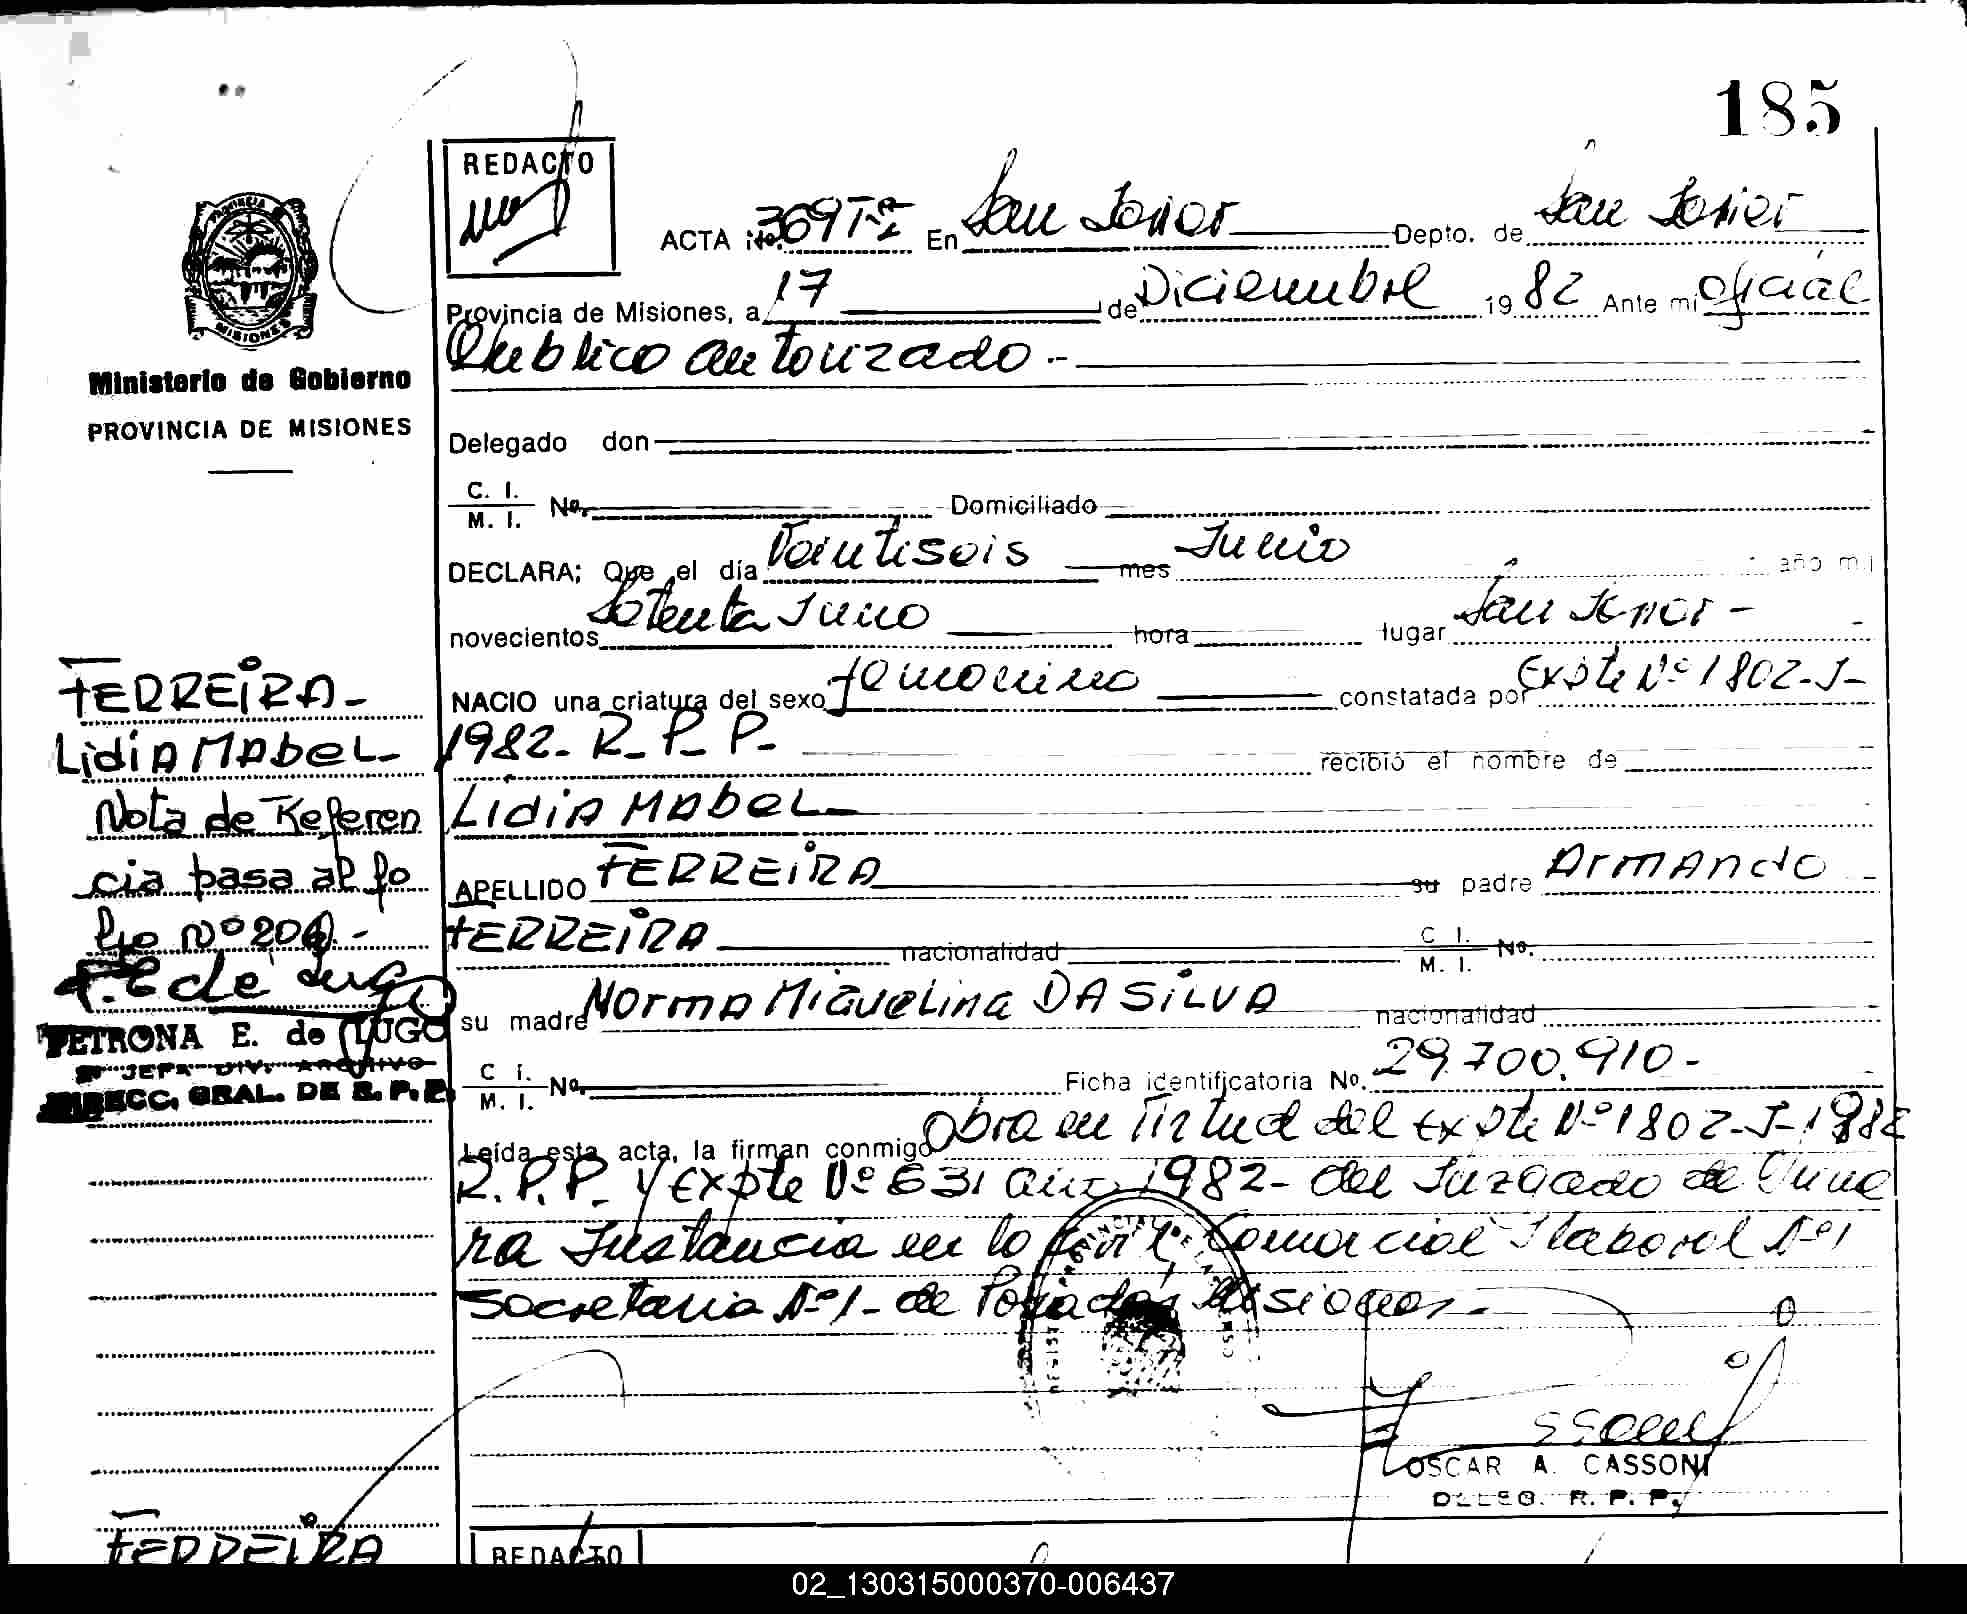 185
REDACTO
ACTA No. 369 Tº I En San Javier Depto. de San Javier
Provincia de Misiones, a 17 de Diciembre 1982 Ante mi Oficial
Público autorizado.-
PROVINCIA
MISIONES
Ministerio de Gobierno
PROVINCIA DE MISIONES
Delegado don
C. I.
M. I. No. Domiciliado
DECLARA; Que el día Veintiseis mes Junio año mi
novecientos Setenta y uno hora lugar San Javier -
NACIO una criatura del sexo femenino constatada por Expte Nº 1802-J-
1982- R- P- P- recibió el nombre de
LidiA MAbeL
APELLIDO FERREiRA su padre ArmAndo
FERREiRA nacionalidad C I. M. I. No.
su madre NormA MiGueLina DA SiLVA nacionalidad
C I. M. I. No. Ficha identificatoria No. 29.700.910-
Leída esta acta, la firman conmigo Obra en virtud del Expte Nº 1802-J-1982
R.P.P- y Expte Nº 631 año 1982- del Juzgado de Prime
ra Instancia en lo Civil, Comercial y laboral Nº 1
Secretaria Nº 1- de Posadas Misiones.-
OSCAR A. CASSONI
DELEG. R. P. P.
FERREiRA-
LidiA MAbeL-
Nota de Referen
cia pasa al fo
lio Nº 206.-
P. E de Lugo
PETRONA E. de LUGO
JEFA DIV. ARCHIVO
DIRECC. GRAL. DE R. P. P.
FERREiRA
REDACTO
02_130315000370-006437